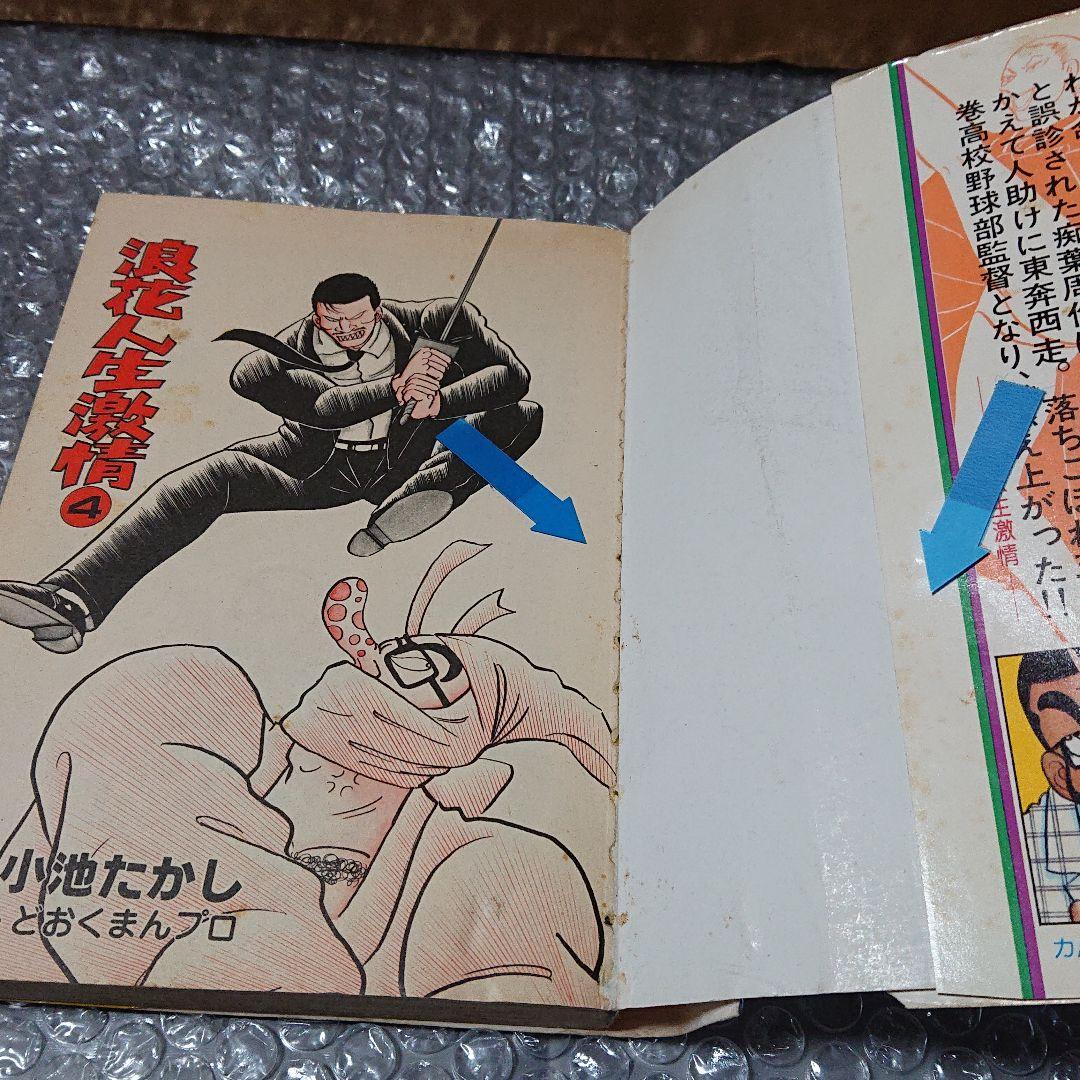 浪花人生激情
4
小池たかし
どおくまんプロ
と誤診された痴葉周作
かえて人助けに東奔西走。落ちこぼれ
巻高校野球部監督となり、
え上がった!!
激情
カ